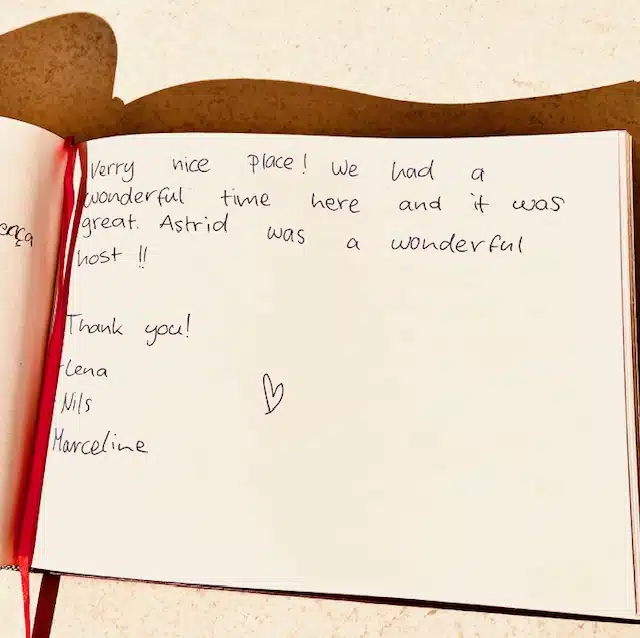 Verry nice place! We had a
wonderful time here and it was
great. Astrid was a wonderful
host !!
Thank you!
-Lena
Nils
Marceline